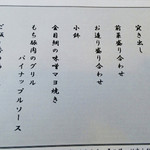 突き出し
前菜盛り合わせ
お造り盛り合わせ
小鉢
金目鯛の味噌マヨ焼き
もち豚肉のグリル
パイナップルソース